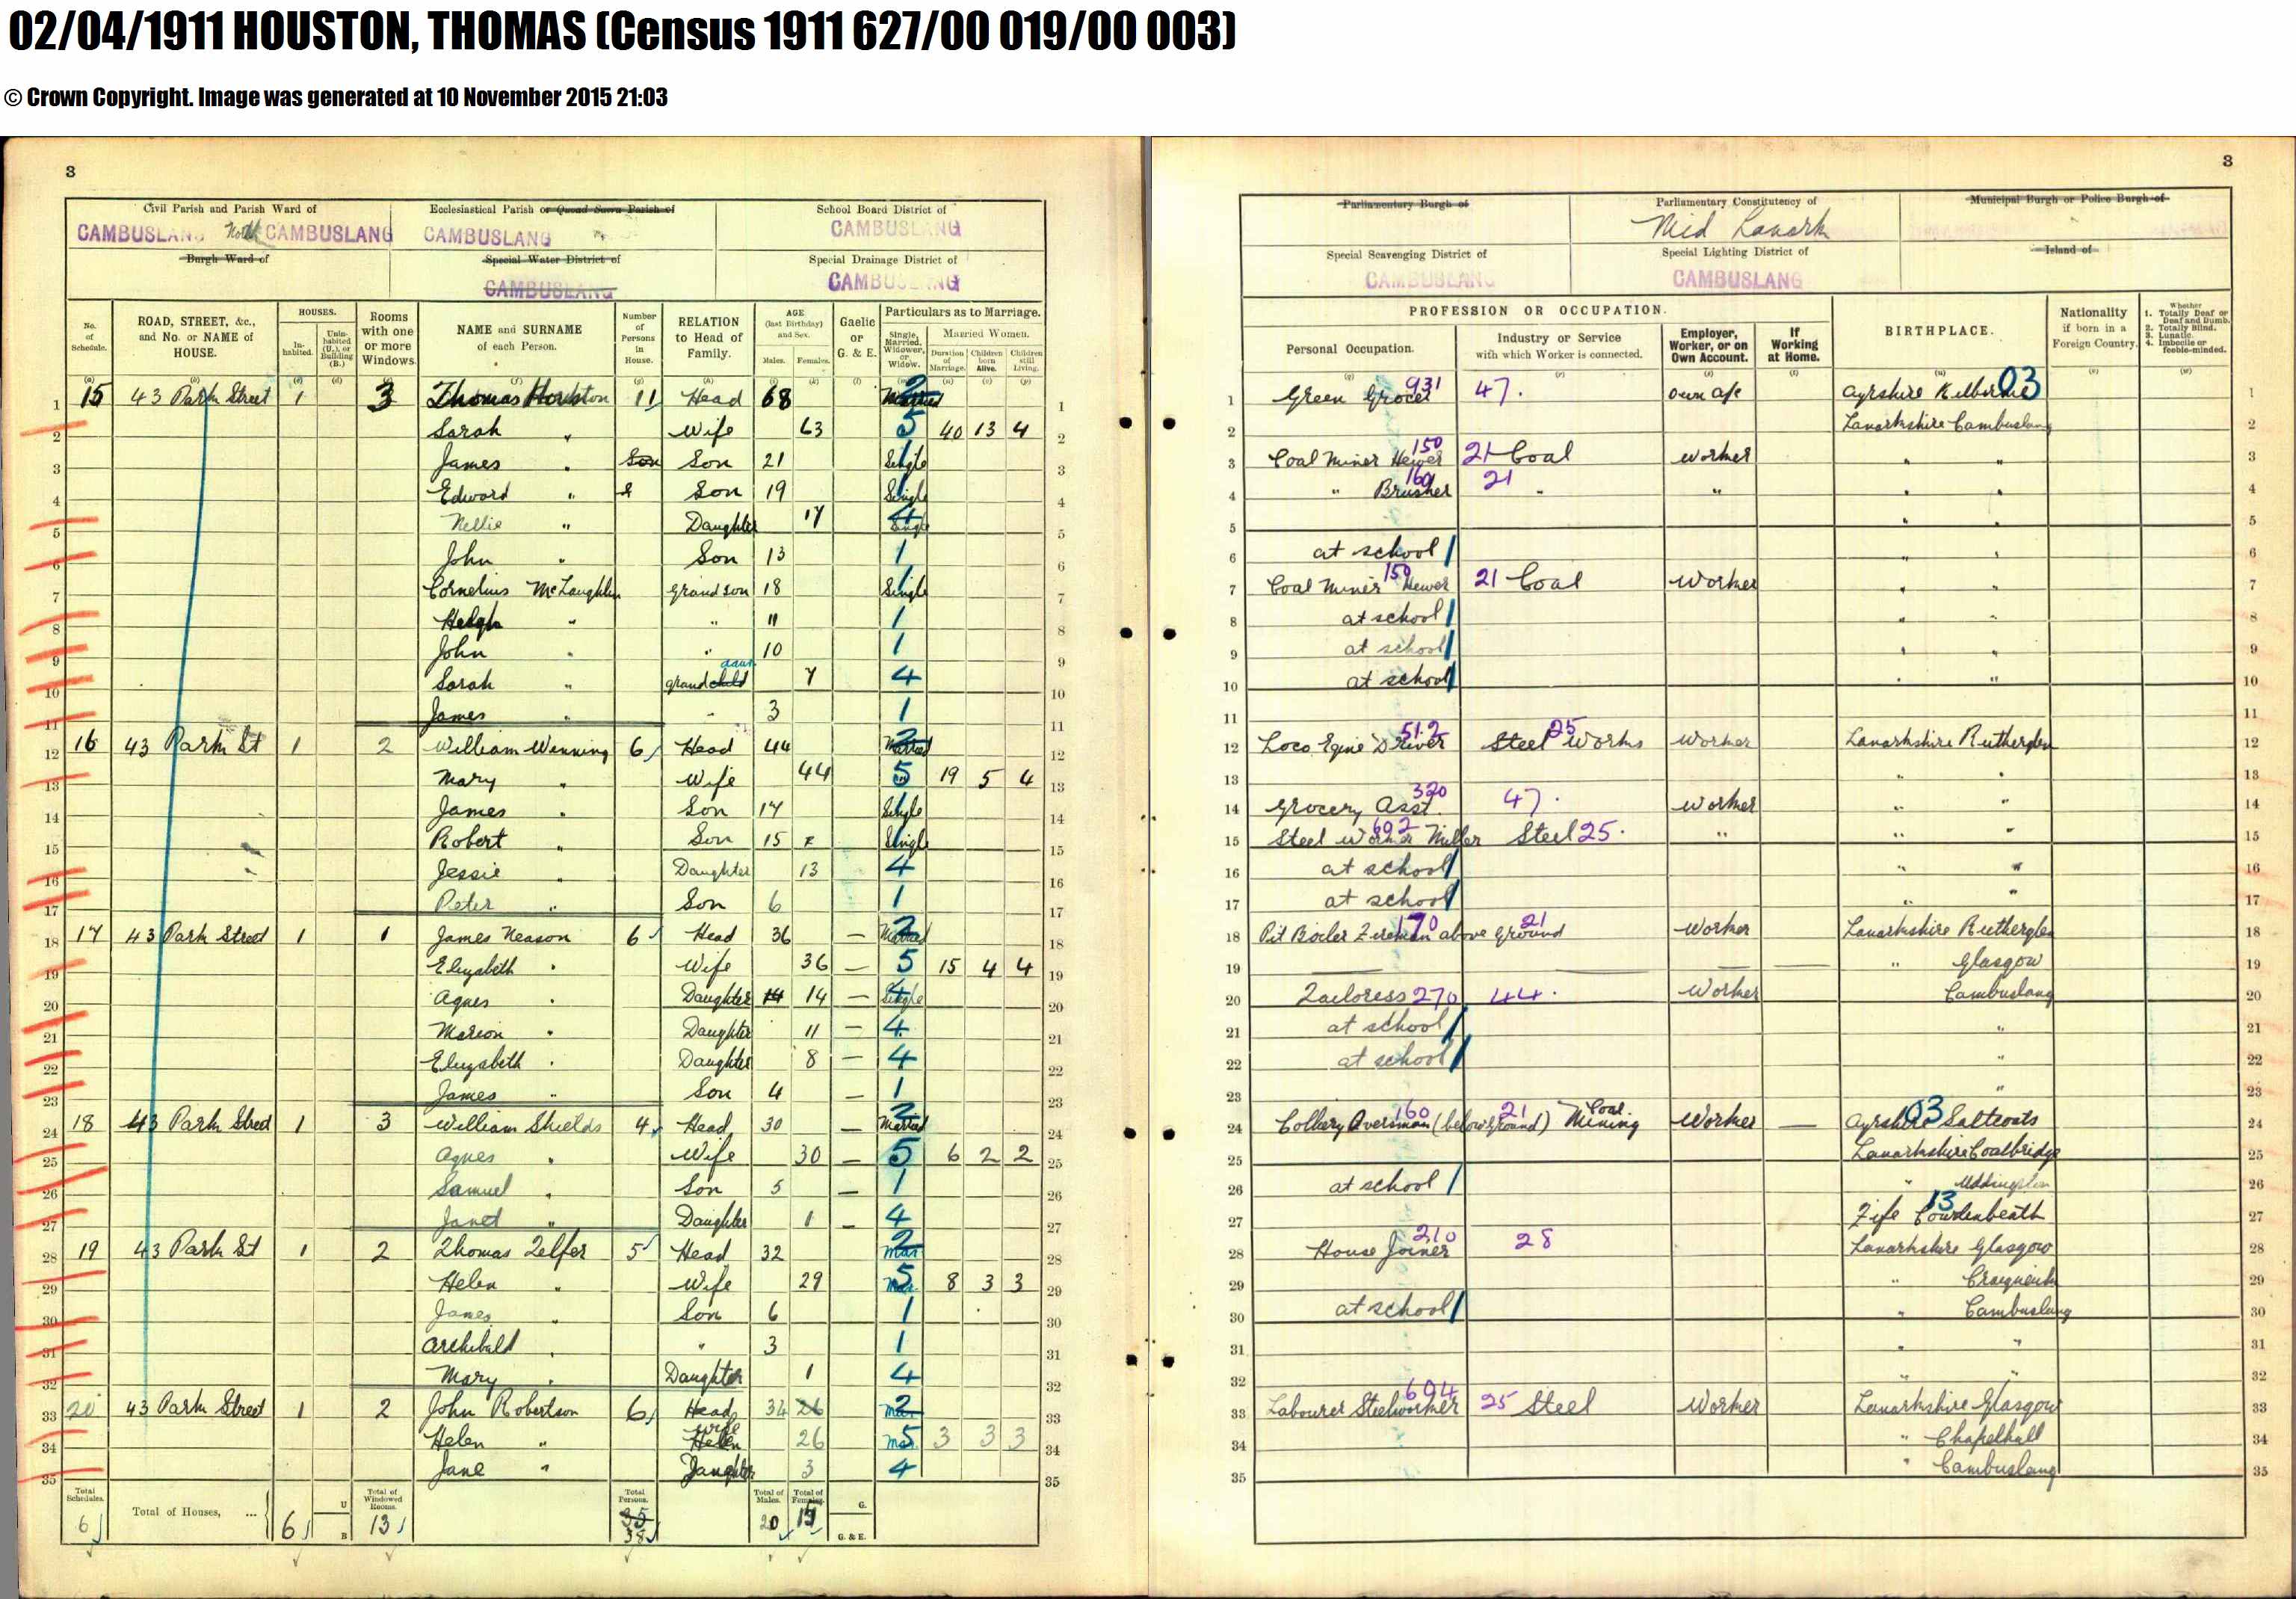 02/04/1911 HOUSTON, THOMAS (Census 1911 627/00 019/00 003)
© Crown Copyright. Image was generated at 10 November 2015 21:03
3
Civil Parish and Parish Ward of
CAMBUSLANG North CAMBUSLANG
Ecclesiastical Parish or Quoad Sacra Parish of
CAMBUSLANG
School Board District of
CAMBUSLANG
Burgh Ward of
Special Water District of
CAMBUSLANG
Special Drainage District of
CAMBUSLANG
No. of Schedule.
ROAD, STREET, &c., and No. or NAME of HOUSE.
HOUSES.
Inhabited.
Uninhabited (U.), or Building (B.)
Rooms with one or more Windows.
NAME and SURNAME of each Person.
Number of Persons in House.
RELATION to Head of Family.
AGE (last Birthday) and Sex.
Males. Females.
Gaelic or G. & E.
Particulars as to Marriage.
Single, Married, Widower, or Widow.
Married Women.
Duration of Marriage.
Children born Alive.
Children still Living.
1 15 43 Park Street 1 3 Thomas Houston 11 Head 68 Married 2 1
2 Sarah " Wife 63 5 40 13 4 2
3 James " Son Son 21 Single 3
4 Edward " Son 19 Single 4
5 Nellie " Daughter 17 Single 4 5
6 John " Son 13 1 6
7 Cornelius McLaughlin grandson 18 Single 7
8 Hugh " " 11 1 8
9 John " " 10 1 9
10 Sarah " grandchild daur 7 4 10
11 James " " 3 1 11
12 16 43 Park St 1 2 William Winning 6 Head 44 Married 2 12
13 Mary " Wife 44 5 19 5 4 13
14 James " Son 17 Single 14
15 Robert " Son 15 Single 15
16 Jessie " Daughter 13 4 16
17 Peter " Son 6 1 17
18 17 43 Park Street 1 1 James Neason 6 Head 36 — Married 2 18
19 Elizabeth " Wife 36 — 5 15 4 4 19
20 Agnes " Daughter 14 14 — Single 4 20
21 Marion " Daughter 11 — 4 21
22 Elizabeth " Daughter 8 — 4 22
23 James " Son 4 — 1 23
24 18 43 Park Street 1 3 William Shields 4 Head 30 — Married 2 24
25 Agnes " Wife 30 — 5 6 2 2 25
26 Samuel " Son 5 — 1 26
27 Janet " Daughter 1 — 4 27
28 19 43 Park St 1 2 Thomas Telfer 5 Head 32 Mar 2 28
29 Helen " Wife 29 Mar 5 8 3 3 29
30 James " Son 6 1 30
31 Archibald " " 3 1 31
32 Mary " Daughter 1 4 32
33 20 43 Park Street 1 2 John Robertson 6 Head 34 26 Mar 2 33
34 Helen " Helen wife 26 Mar 5 3 3 3 34
35 Jane " Daughter 3 4 35
Total Schedules. 6
Total of Houses, ... 6 U B
Total of Windowed Rooms. 13
Total Persons. 35 38
Total of Males. 20
Total of Females. 15
G.
G. & E.
3
Parliamentary Burgh of
Parliamentary Constitutency of
Mid Lanark
Municipal Burgh or Police Burgh of
Special Scavenging District of
CAMBUSLANG
Special Lighting District of
CAMBUSLANG
Island of
PROFESSION OR OCCUPATION.
Personal Occupation.
Industry or Service with which Worker is connected.
Employer, Worker, or on Own Account.
If Working at Home.
BIRTHPLACE.
Nationality if born in a Foreign Country.
Whether
1. Totally Deaf or Deaf and Dumb.
2. Totally Blind.
3. Lunatic.
4. Imbecile or feeble-minded.
1 Green Grocer 931 47. own a/c Ayrshire Kilbirnie 03 1
2 Lanarkshire Cambuslang 2
3 Coal Miner Hewer 150 21 Coal Worker " " 3
4 " Brusher 160 21 " " " " 4
5 " " 5
6 at school " " 6
7 Coal Miner Hewer 150 21 Coal Worker " " 7
8 at school " " 8
9 at school " " 9
10 at school " " 10
11 11
12 Loco Egine Driver 512 Steel Works 25 Worker Lanarkshire Rutherglen 12
13 " " 13
14 Grocery Asst. 320 47. Worker " " 14
15 Steel Worker Miller 692 Steel 25. " " " 15
16 at school " " 16
17 at school " " 17
18 Pit Boiler Fireman above ground 170 21 Worker Lanarkshire Rutherglen 18
19 — — — — " Glasgow 19
20 Tailoress 270 44. Worker Cambuslang 20
21 at school " 21
22 at school " 22
23 " 23
24 Colliery Oversman (below ground) 160 21 Coal Mining Worker — Ayrshire Saltcoats 03 24
25 Lanarkshire Coatbridge 25
26 at school " Uddingston 26
27 Fife Cowdenbeath 13 27
28 House Joiner 210 28 Lanarkshire Glasgow 28
29 " 29
30 at school " Cambuslang 30
31 " " 31
32 " " 32
33 Labourer Steelworker 694 25 Steel Worker Lanarkshire Glasgow 33
34 " Chapelhall 34
35 " Cambuslang 35